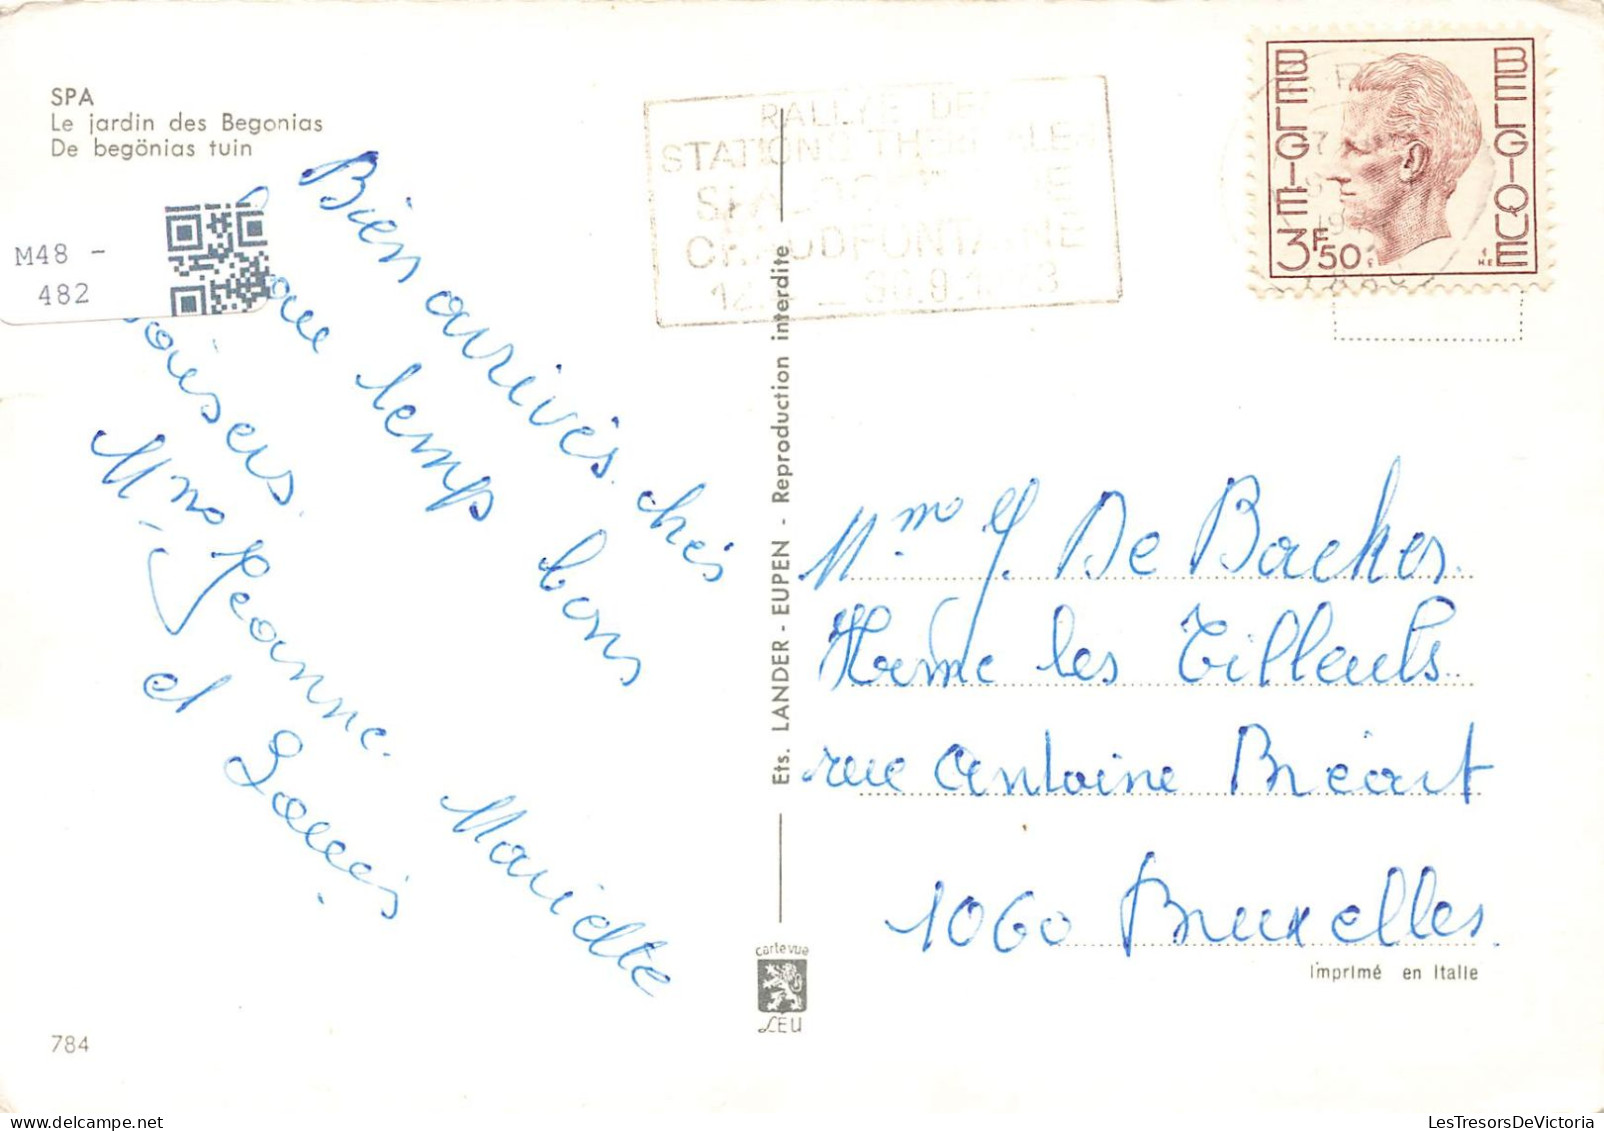 SPA
Le jardin des Begonias
De begönias tuin
M48 -
482
Bien arrivés chés
temp bons
baisers.
Mme Jeanne. Mariette
et Louis
784
Ets. LANDER - EUPEN - Reproduction interdite
carte vue
LEU
RALLYE DES
STATIONS THERMALES
SPA
CHAUDFONTAINE
30.9.1973
BELGIE
BELGIQUE
3F50
Mme J. De Backer
Home les Tilleuls
rue Antoine Bréart
1060 Bruxelles.
Imprimé en Italie
LesTresorsDeVictoria